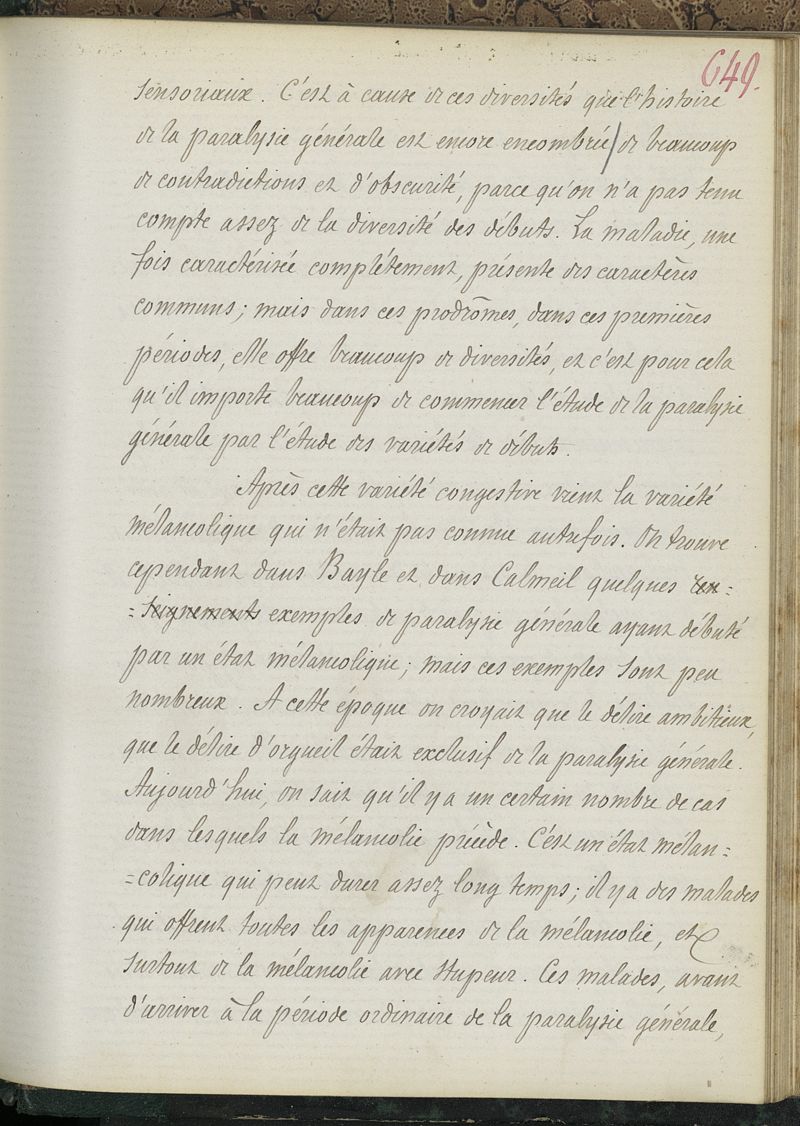 649.
sensoriaux. C'est à cause de ces diversités que l'histoire
de la paralysie générale est encore encombrée/de beaucoup
de contradictions et d'obscurité, parce qu'on n'a pas tenu
compte assez de la diversité des débuts. La maladie, une
fois caractérisée complétement, présente des caractères
communs; mais dans ces prodrômes, dans ces premières
périodes, elle offre beaucoup de diversités, et c'est pour cela
qu'il importe beaucoup de commencer l'étude de la paralysie
générale par l'étude des variétés de débuts.
Après cette variété congestive vient la variété
mélancolique qui n'était pas connue autrefois. On trouve
cependant dans Bayle et dans Calmeil quelques ren=
=seignements exemples de paralysie générale ayant débuté
par un état mélancolique; mais ces exemples sont peu
nombreux. A cette époque on croyait que le délire ambitieux,
que le délire d'orgueil était exclusif de la paralysie générale.
Aujourd'hui, on sait qu'il y a un certain nombre de cas
dans lesquels la mélancolie précède. C'est un état mélan=
=colique qui peut durer assez long temps; il y a des malades
qui offrent toutes les apparences de la mélancolie, et
surtout de la mélancolie avec stupeur. Ces malades, avant
d'arriver à la période ordinaire de la paralysie générale,